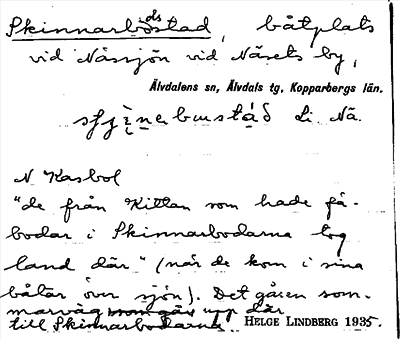 Skinnarbodsstad, båtplats
vid Nässjön vid Näsets by,
Älvdalens sn, Älvdals tg, Kopparbergs län.
Li. Nä.
N Kasbol
"de från Kittan som hade fä-
bodar i Skinnarbodarna tog
land där" (när de kom i sina
båtar över sjön). Det går en som-
marväg upp där
till Skinnarbodarna. HELGE LINDBERG 1935.